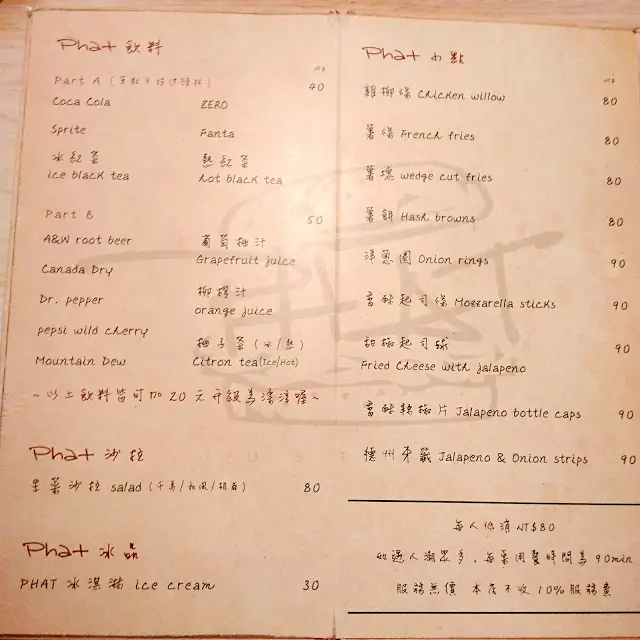 Phat 飲料
NT$
Part A
40
Coca Cola ZERO
Sprite Fanta
冰紅茶 熱紅茶
ice black tea hot black tea
Part B 50
A&W root beer 葡萄柚汁
Grapefruit juice
Canada Dry
柳橙汁
Dr. pepper orange juice
pepsi wild cherry 柚子茶(冰/熱)
Mountain Dew Citron tea(Ice/Hot)
~以上飲料皆可加 20 元升級為漂漂喔~
Phat 沙拉
生菜沙拉 salad (千島/和風/胡麻) 80
Phat 冰品
PHAT 冰淇淋 ice cream 30
Phat 小點
NT$
雞柳條 Chicken willow 80
薯條 French fries 80
薯塊 wedge cut fries 80
薯餅 Hash browns 80
洋蔥圈 Onion rings 90
香酥起司條 Mozzarella sticks 90
胡椒起司球 90
Fried Cheese with jalapeno
香酥辣椒片 Jalapeno bottle caps 90
德州牙籤 Jalapeno & Onion strips 90
每人低消 NT$80
如遇人潮眾多,每桌用餐時間為 90min
服務無價 本店不收 10% 服務費
JUST